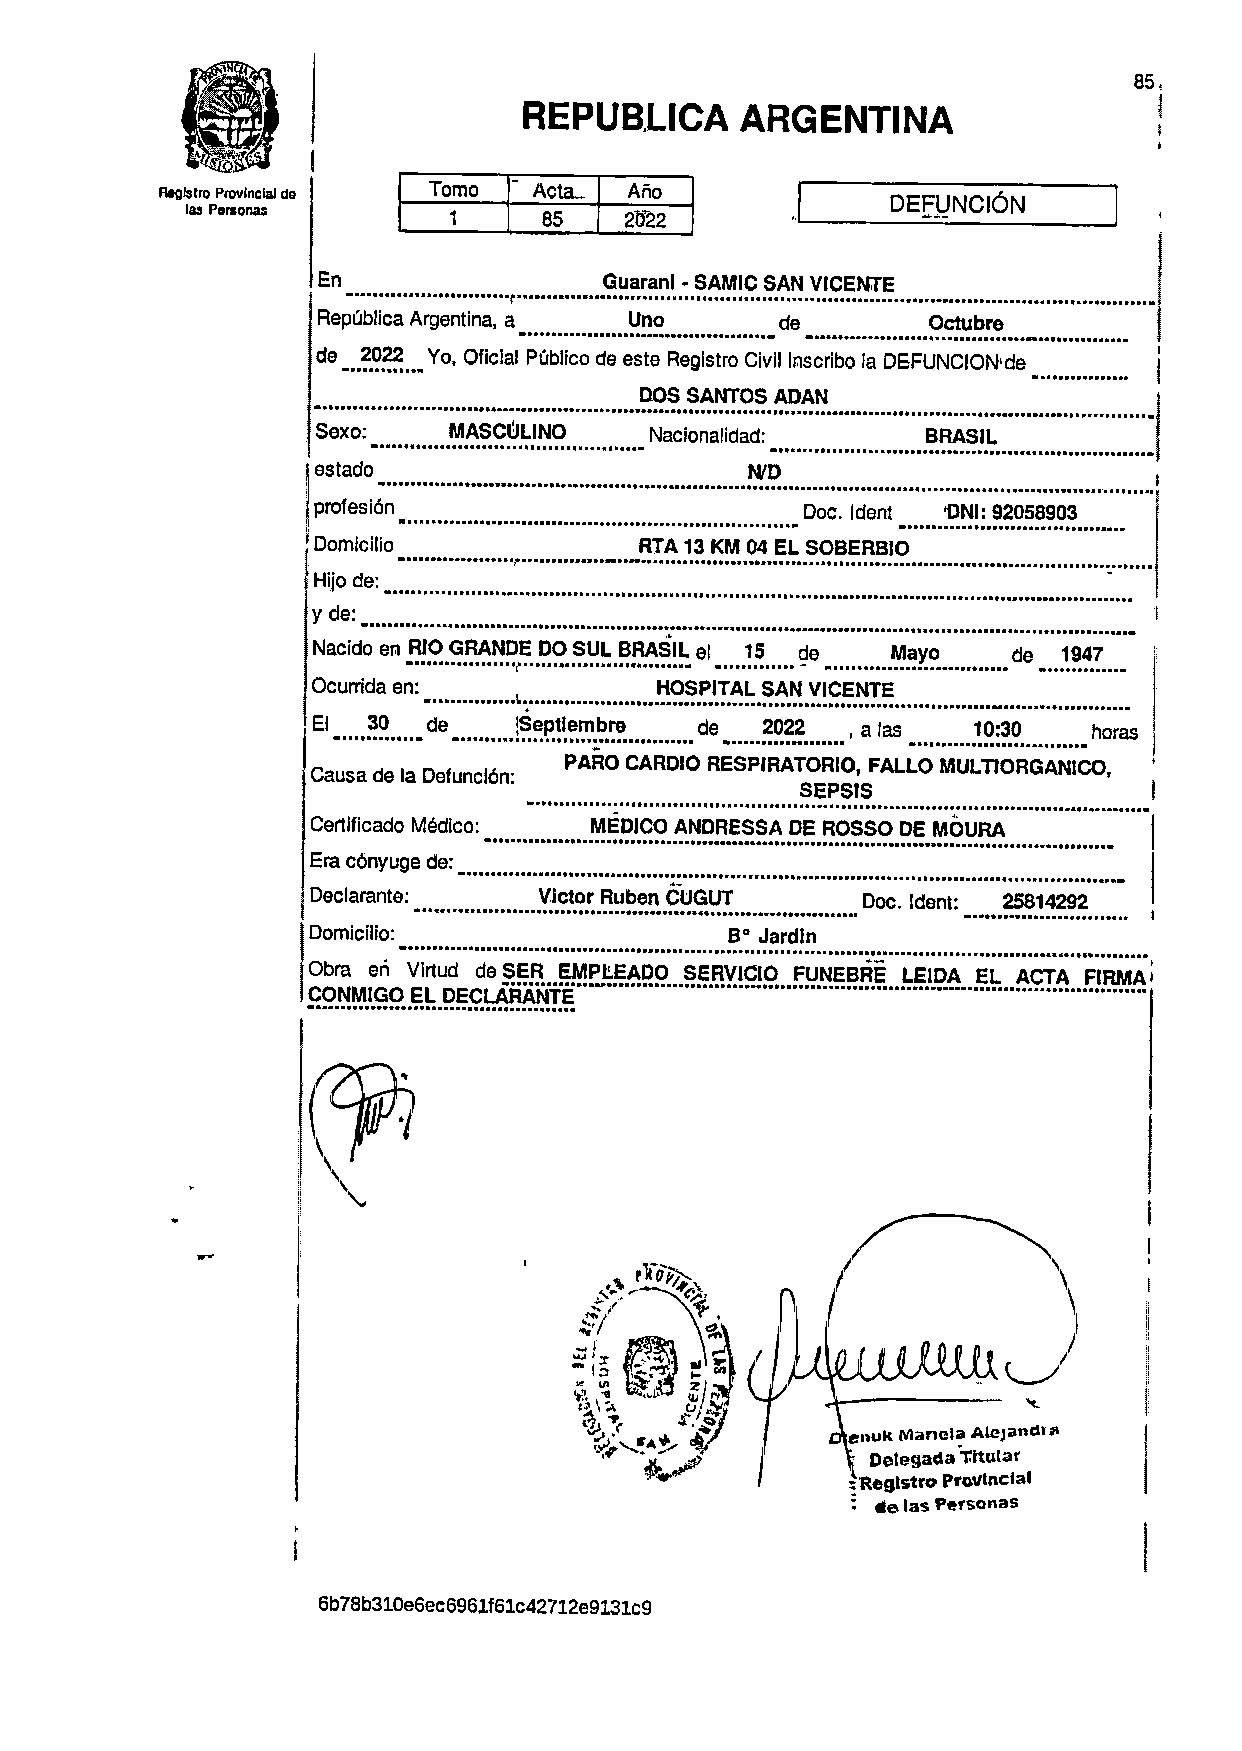 85
PROVINCIA DE
MISIONES
Registro Provincial de
las Personas
REPUBLICA ARGENTINA
Tomo Acta Año
1 85 2022
DEFUNCIÓN
En Guaraní - SAMIC SAN VICENTE
República Argentina, a Uno de Octubre
de 2022 Yo, Oficial Público de este Registro Civil Inscribo la DEFUNCION de
DOS SANTOS ADAN
Sexo: MASCULINO Nacionalidad: BRASIL
estado N/D
profesión Doc. Ident DNI: 92058903
Domicilio RTA 13 KM 04 EL SOBERBIO
Hijo de:
y de:
Nacido en RIO GRANDE DO SUL BRASIL el 15 de Mayo de 1947
Ocurrida en: HOSPITAL SAN VICENTE
El 30 de Septiembre de 2022 , a las 10:30 horas
Causa de la Defunción: PARO CARDIO RESPIRATORIO, FALLO MULTIORGANICO,
SEPSIS
Certificado Médico: MÉDICO ANDRESSA DE ROSSO DE MOURA
Era cónyuge de:
Declarante: Victor Ruben CUGUT Doc. Ident: 25814292
Domicilio: Bº Jardin
Obra en Virtud de SER EMPLEADO SERVICIO FUNEBRE LEIDA EL ACTA FIRMA
CONMIGO EL DECLARANTE
DEL REGISTRO PROVINCIAL DE LAS PERSONAS
HOSPITAL SAN VICENTE
Alejandra
Delegada Titular
Registro Provincial
de las Personas
6b78b310e6ec6961f61c42712e9131c9